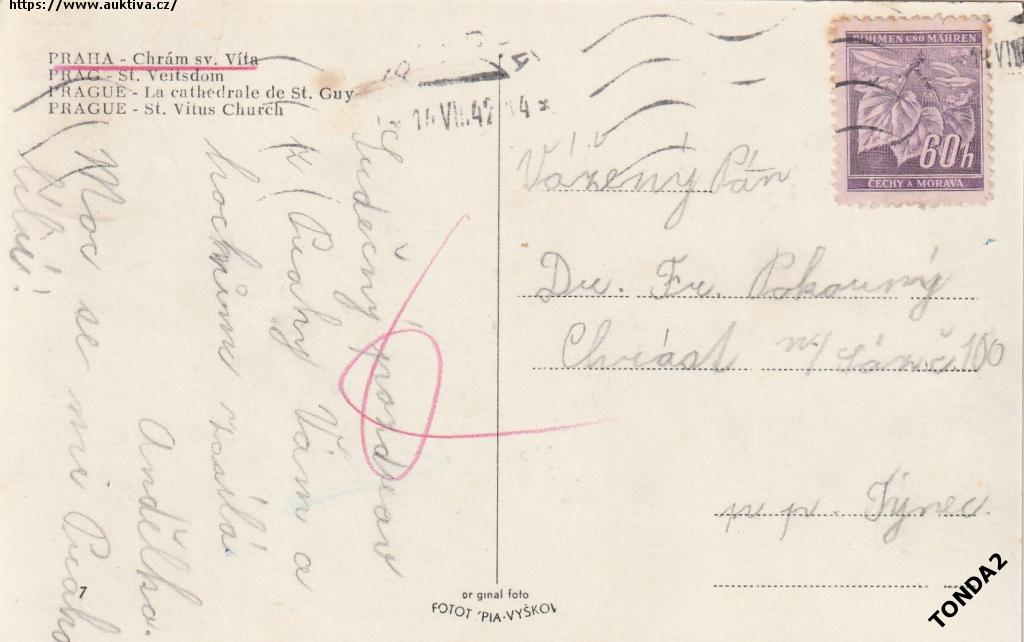 https://www.auktiva.cz/
PRAHA - Chrám sv. Víta
PRAG - St. Veitsdom
PRAGUE - La cathédrale de St. Guy
PRAGUE - St. Vitus Church
14 VIII 42 14
BÖHMEN UND MÄHREN
60h
ČECHY A MORAVA
Srdečný pozdrav
z Prahy Vám a
hochům zasílá
Andělka.
Moc se mi Praha
líbí!
Vážený Pán
Dr. Fr. Pokorný
Chrást n/Sáz č. 100
p. p. Týnec
7
original foto
FOTOTYPIA-VYŠKOV
TONDA2